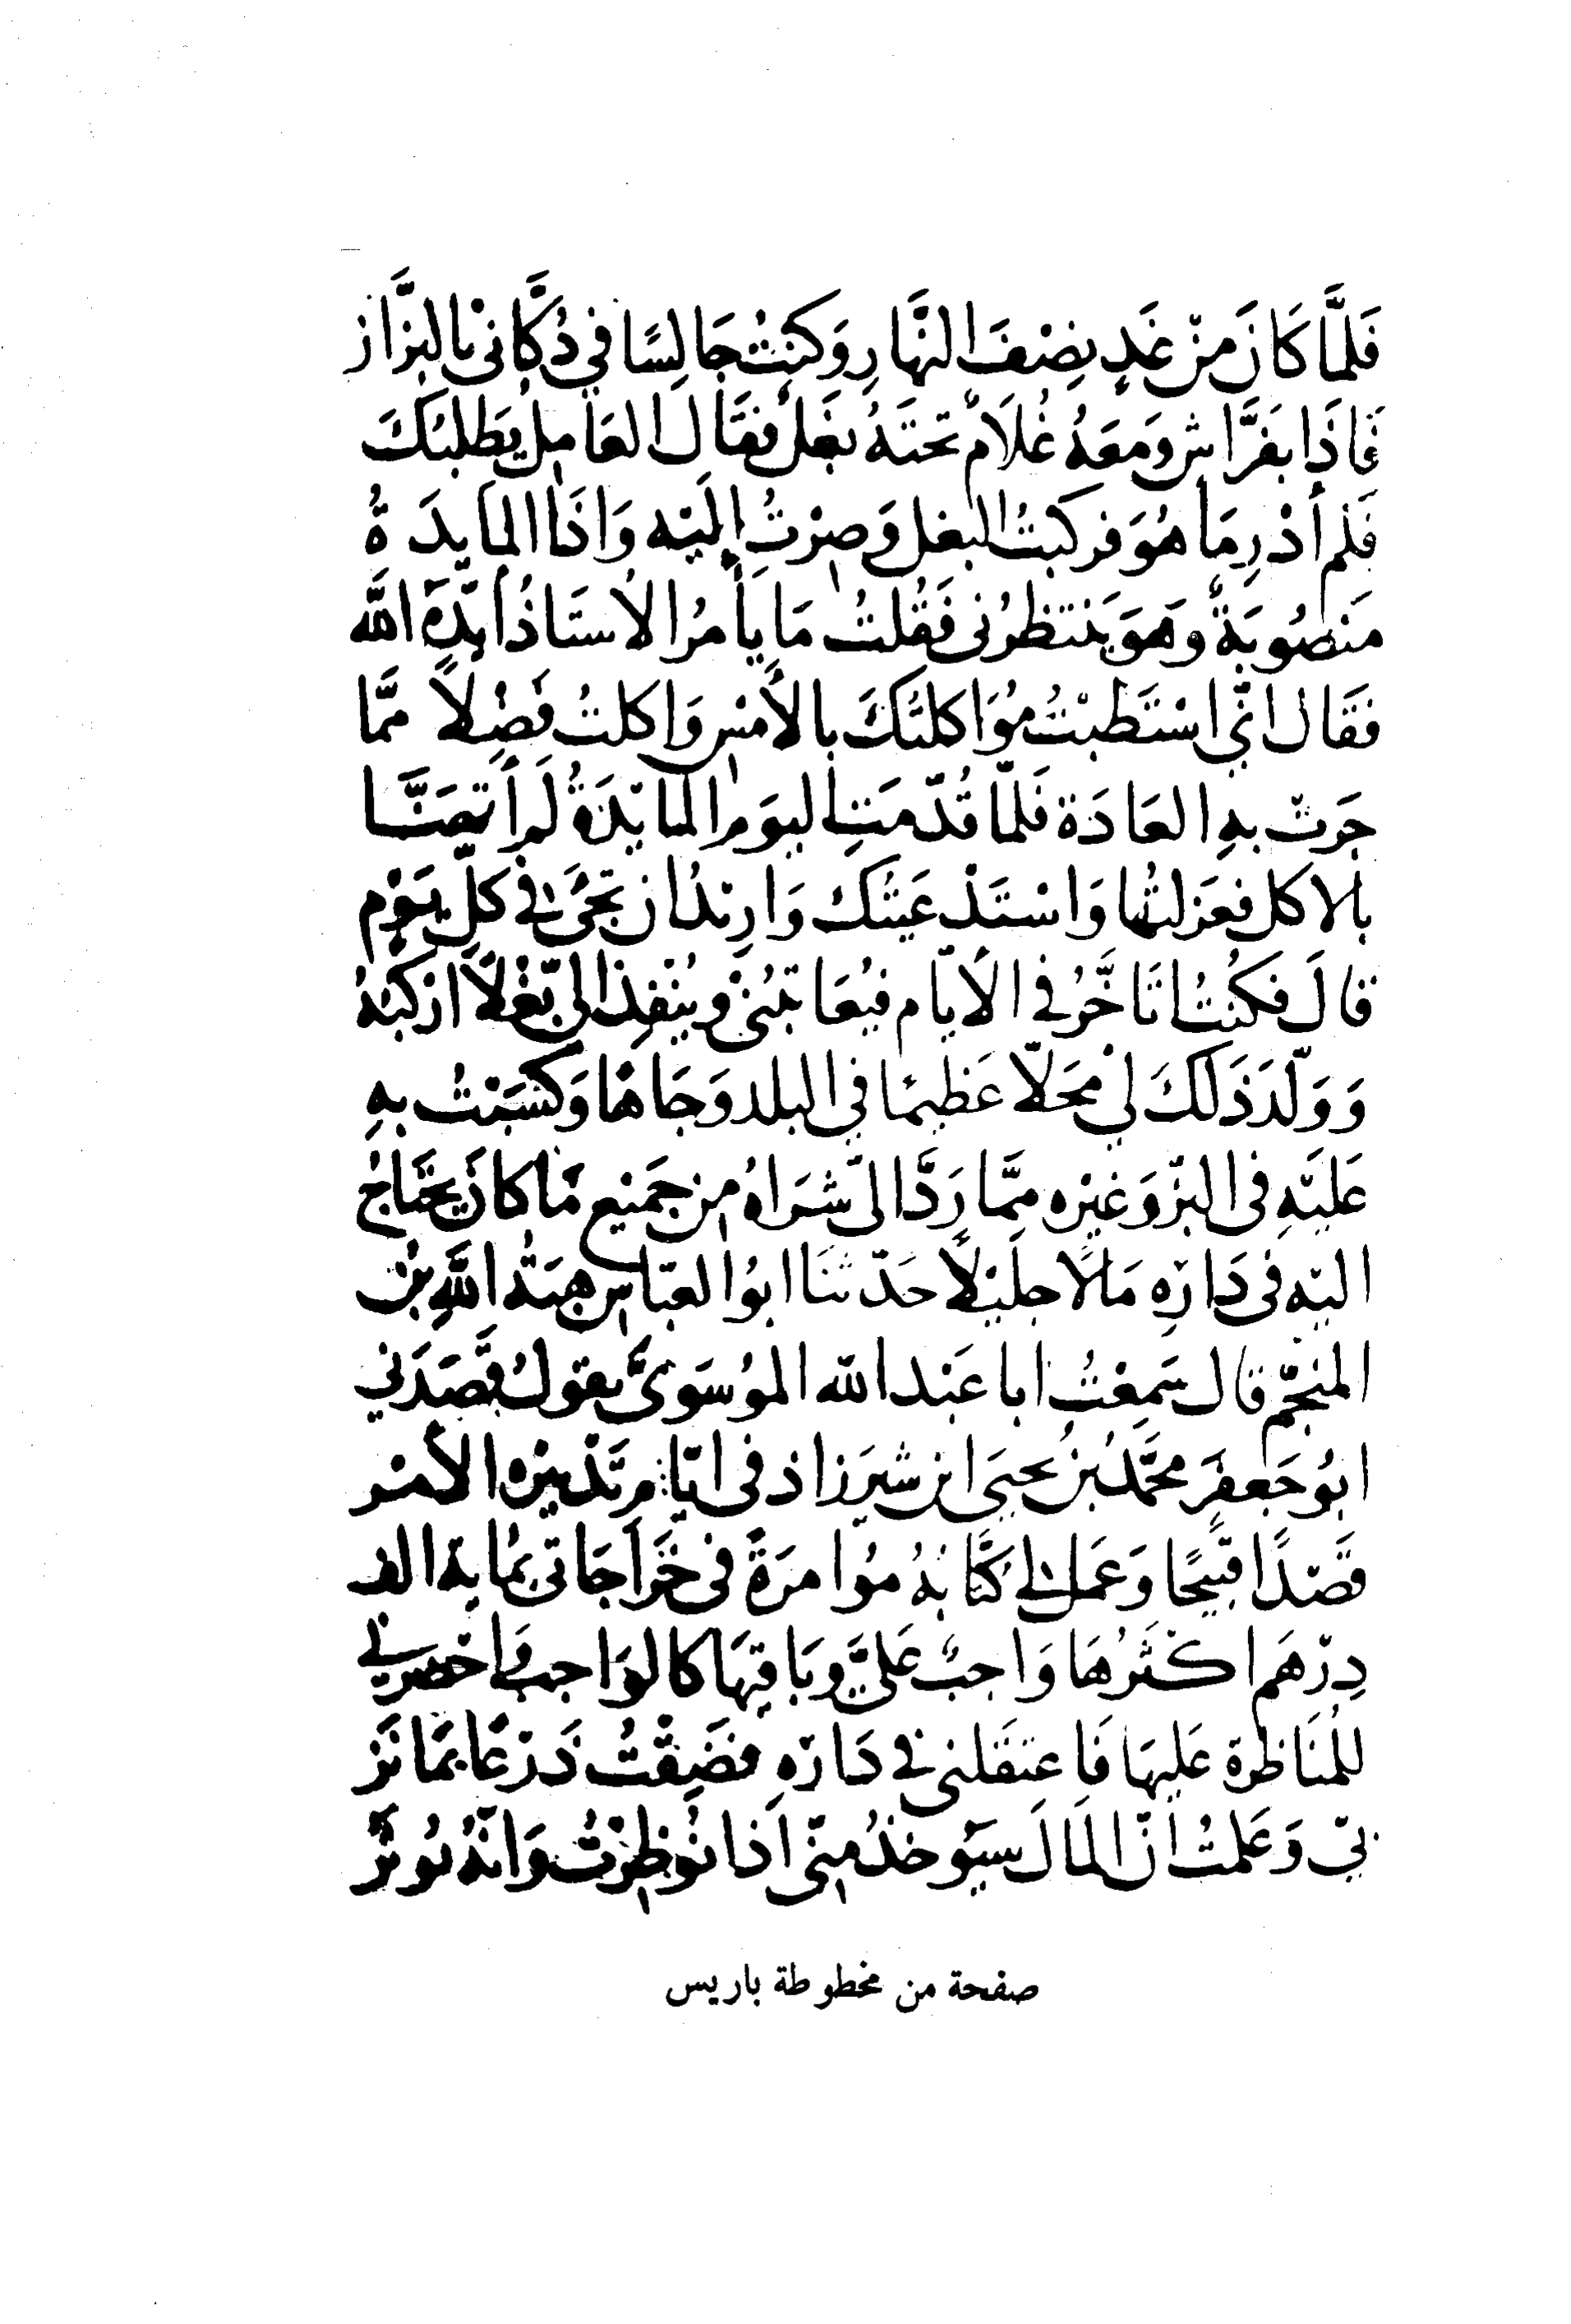 فَلَمَّا كَانَ مِنْ غَدٍ نِصْفَ النَّهَارِ وَكُنْتُ جَالِسًا فِي دُكَّانِي بِالبَزَّازِ
فَإِذَا بفَرَّاشٍ وَمَعَهُ غُلَامٌ تَحْتَهُ بَغْلٌ فقَالَ العَامِلُ يَطلبُكَ
فَلم أدْرِ مَا هُوَ فركبتُ البغل وَصِرْتُ إليْه وَاذَا المايدَةُ
مَنصُوبَةٌ وَهوَ يَنتظرُني فَقُلتُ مَا يأمرُ الأستَاذُ أيّدَهُ اللّه
فَقَال انّي اسْتَطبْتُ مُؤَاكلتَكَ بالأمْسِ وَاكلتُ فَضْلاً ممَّا
جَرَتْ بهِ العَادَة فَلمّا قُدّمَتِ اليوَم المايْدَةُ لَم أتهَنَّا
بالاكل فعَزلتُها وَاسْتَدْعَيتُك وَارِيْدُ ان تجيَ في كلّ يَوْم
قالَ فَكُنتُ اتَاخَّرُ في الأيّام فيُعَاتبُني ويُنْفِذ اليّ بَغْلاً اركَبُهُ
وَوَلّدَ ذَلكَ لي مَحَلّا عَظِيْمًا في البلد وَجَاهًا وَكسَبْتُ بهِ
عَليْهِ في البزّ وَغَيْره ممَّا رَدَّ اليّ شرَاهُ من جَمْيع مَا كانَ يحتَاجُ
اليْه في دَارِه مَالاً جليْلاً حَدّثنَا ابُو العبّاس هبَةُ اللّهِ بنُ
المنجّم قال سَمِعْتُ ابا عَبْد اللّه الموُسَويَّ يقولُ قصَدَني
ابُو جَعفَر محمَّدُ بنُ يَحيَى ابن شيرَزاد في ايّام تَدْبيْرِهِ الأمْر
قَصْدًا قبيْحًا وَعَمل لي كتَّابُهُ مُؤامرَةً في خَرَاجَاتي بمايةِ الف
دِرْهَم اكثَرُهَا وَاجبٌ عَليَّ وبَاقيهَا كالوَاجب وَاحضرني
للمُنَاظرة عَليهَا فَاعتقَلني في دَارِه فضَقْتُ ذَرْعًا بمَا نَزَ
بي وَعَلمتُ انّ المَالَ سيَؤخذُ منّي اذا نُوظرْتُ وَانّهُ يُوثِّر
صفحة من مخطوطة باريس